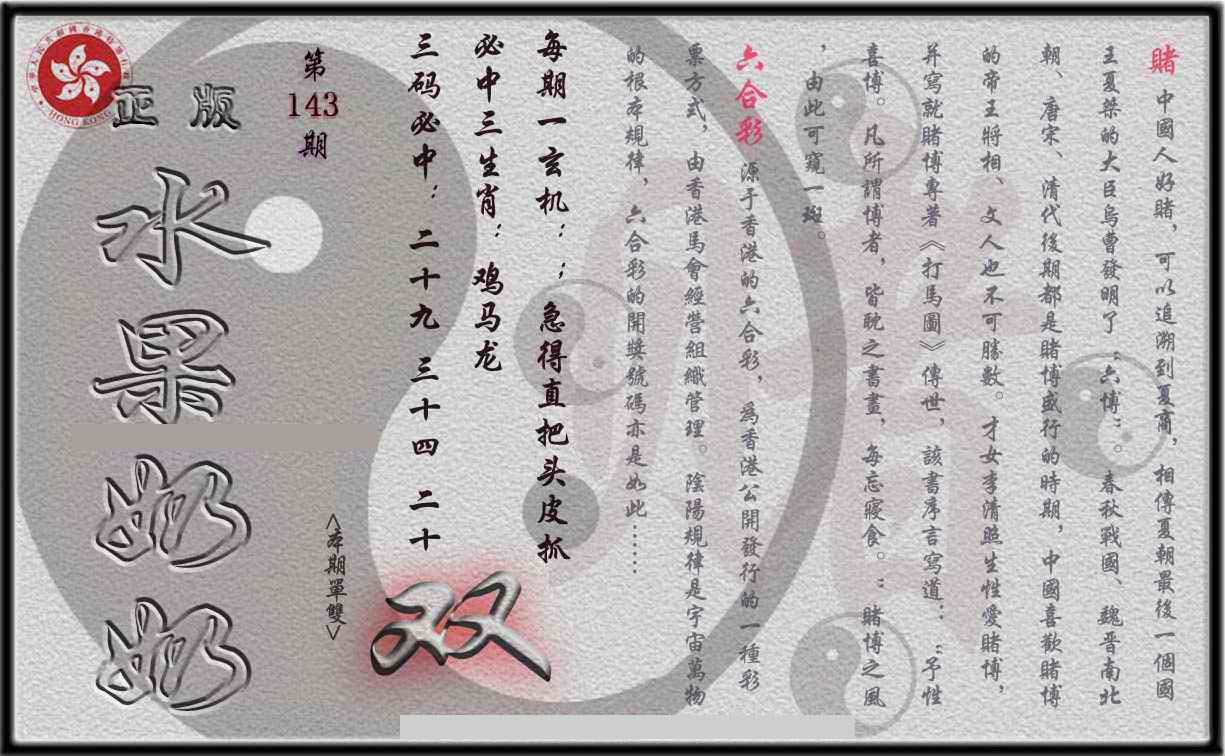 賭 中國人好賭，可以追溯到夏商，相傳夏朝最後一個國
王夏桀的大臣烏曹發明了“六博”。春秋戰國、魏晋南北
朝、唐宋、清代後期都是賭博盛行的時期，中國喜歡賭博
的帝王將相、文人也不可勝數。才女李清照生性愛賭博，
并寫就賭博專著《打馬圖》傳世，該書序言寫道：“予性
喜博。凡所謂博者，皆耽之書晝，每忘寢食。”賭博之風
，由此可窺一斑。
六合彩 源于香港的六合彩，為香港公開發行的一種彩
票方式，由香港馬會經營組織管理。陰陽規律是宇宙萬物
的根本規律，六合彩的開獎號碼亦是如此……
每期一玄机：；急得直把头皮抓
必中三生肖：鸡马龙
三码必中：二十九 三十四 二十
双
<本期單雙>
第
143
期
正版
水果奶奶
HONG KONG